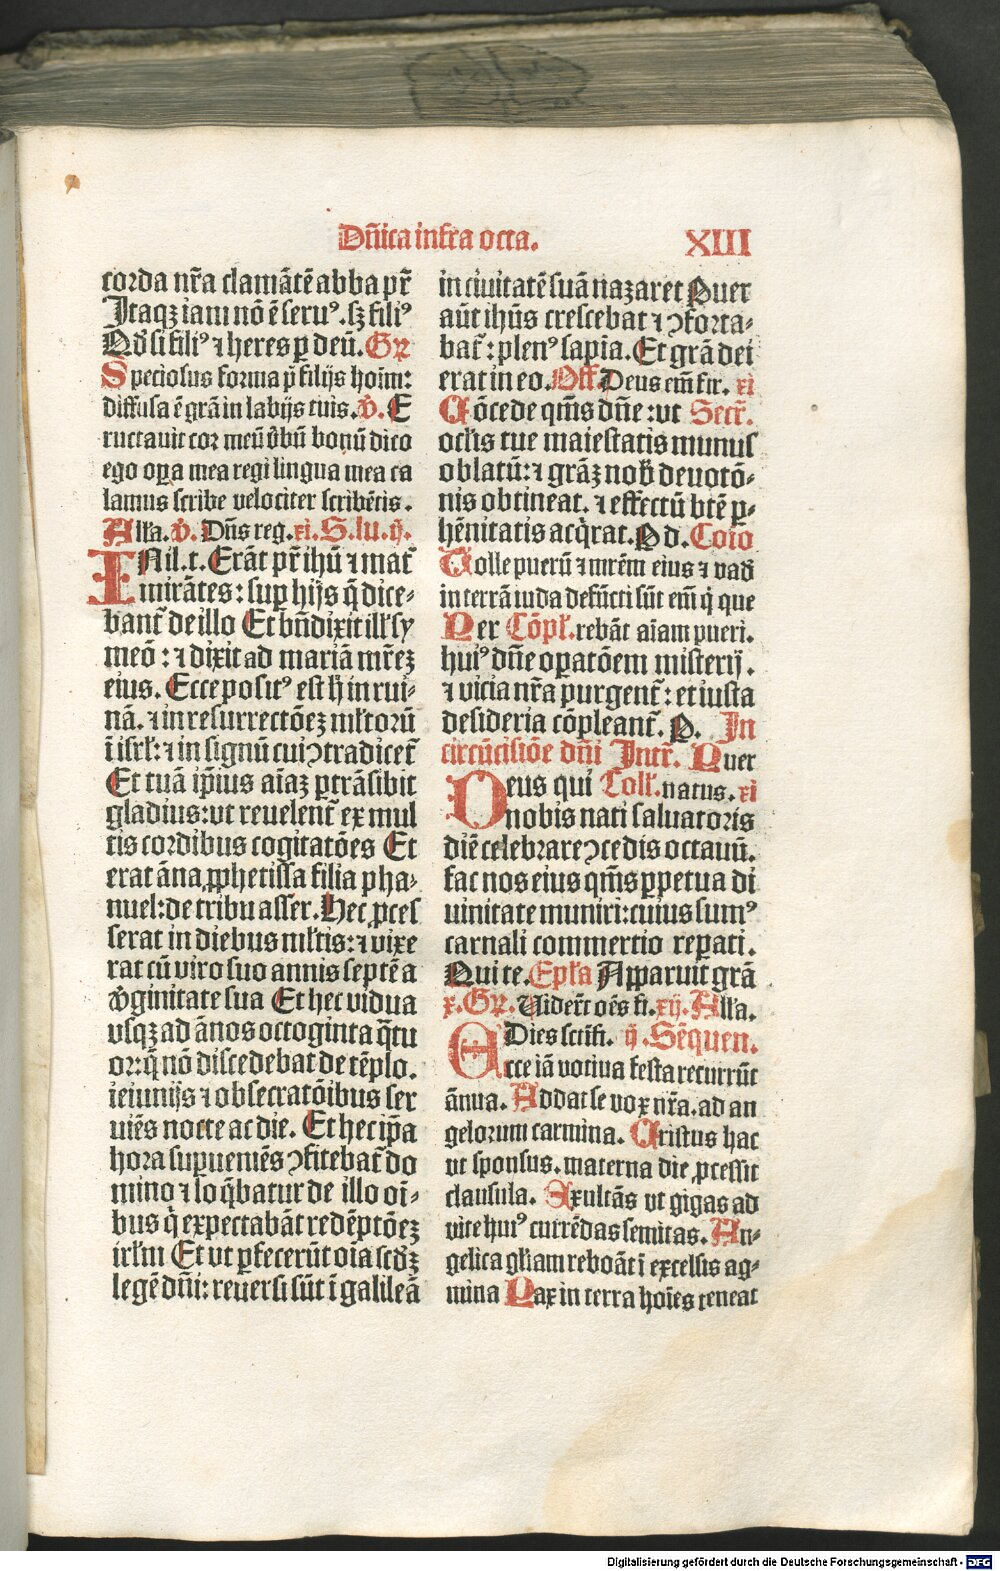 Dñica infra octa.
XIII
corda nr̃a clamãtẽ abba pr̃
Itaqꝫ iam nõ ẽ seruꝰ. sꝫ filiꝰ
Qđ si filiꝰ ⁊ heres ꝑ deũ. Gr̃
Speciosus forma p̃ filijs hoim̃:
diffusa ẽ grã in labijs tuis. v̾. E
ructauit cor meũ v̾bũ bonũ dico
ego oꝑa mea regi lingua mea ca
lamus scribe velociter scribẽtis.
Alĺa. v̾. Dñs reg. xi. S. lu. ij.
IN il. t. Erãt pr̃ ihũ ⁊ mat̃
mirãtes: suꝑ hijs q̃ dice⸗
bant̃ de illo Et bñdixit illꝭ sy
meõ: ⁊ dixit ad mariã mr̃eꝫ
eius. Ecce positꝰ est hĩ in rui⸗
nã. ⁊ in resurrectõeꝫ ml̃torũ
ĩ isrl̃: ⁊ in signũ cui ꝯtradicet̃
Et tuã ip̃ius aĩaꝫ ꝑtrãsibit
gladius: vt reuelent̃ ex mul
tis cordibus cogitatões Et
erat ãna ꝓphetissa filia pha⸗
nuel: de tribu asser. Hec ꝓces
serat in diebus ml̃tis: ⁊ vixe
rat cũ viro suo annis septẽ a
v̾ginitate sua Et hec vidua
vsqꝫ ad ãnos octoginta q̃tu
or: q̃ nõ discedebat de tẽplo.
ieiunijs ⁊ obsecratõibus ser
uiẽs nocte ac die. Et hec ip̃a
hora suꝑueniẽs ꝯfitebat̃ do
mino ⁊ loq̃batur de illo oĩ⸗
bus q̇ expectabãt redẽptõeꝫ
irl̃m Et vt ꝑfecerũt oĩa scđꝫ
legẽ dñi: reuersi sũt ĩ galileã
in ciuitatẽ suã nazaret Puer
aũt ihũs crescebat ⁊ ꝯforta⸗
bat̃: plenꝰ sapĩa. Et grã dei
erat in eo. Off. Deus em̃ fir. xi
Cõcede qm̃s dñe: vt Secr̃.
octĺis tue maiestatis munus
oblatũ: ⁊ grãꝫ nob̃ deuotõ⸗
nis obtineat. ⁊ effectũ btẽ ꝑ⸗
hẽnitatis acq̇rat. Pd. Coĩo
Tolle puerũ ⁊ mr̃em eius ⁊ vađ
in terrã iuda defũcti sũt em̃ q̇ que
Per Cõpl̃. rebãt aĩam pueri.
huiꝰ dñe oꝑatõem misterij.
⁊ vicia nr̃a purgent̃: et iusta
desideria cõpleant̃. P. In
circũcisiõe dñi Intr̃. Puer
Deus qui Coll̃. natus. xi
nobis nati saluatoris
diẽ celebrare ꝯcedis octauũ.
fac nos eius qm̃s ꝑpetua di
uinitate muniri: cuius sumꝰ
carnali commertio reꝑati.
Qui te. Epl̃a Apparuit grã
x. Gr̃. Uider̃t oẽs fi. xij. Alĺa.
Dies scĩfi. ij. Sẽquen.
Ecce iã votiua festa recurrũt
ãnua. Addat se vox nr̃a. ad an
gelorum carmina. Cristus hac
vt sponsus. materna die ꝓcessit
clausula. Exultãs vt gigas ad
vite huiꝰ currẽdas semitas. An⸗
gelica gl̃iam reboãt ĩ excelsis ag⸗
mina Pax in terra hoĩes teneat
Digitalisierung gefördert durch die Deutsche Forschungsgemeinschaft - DFG